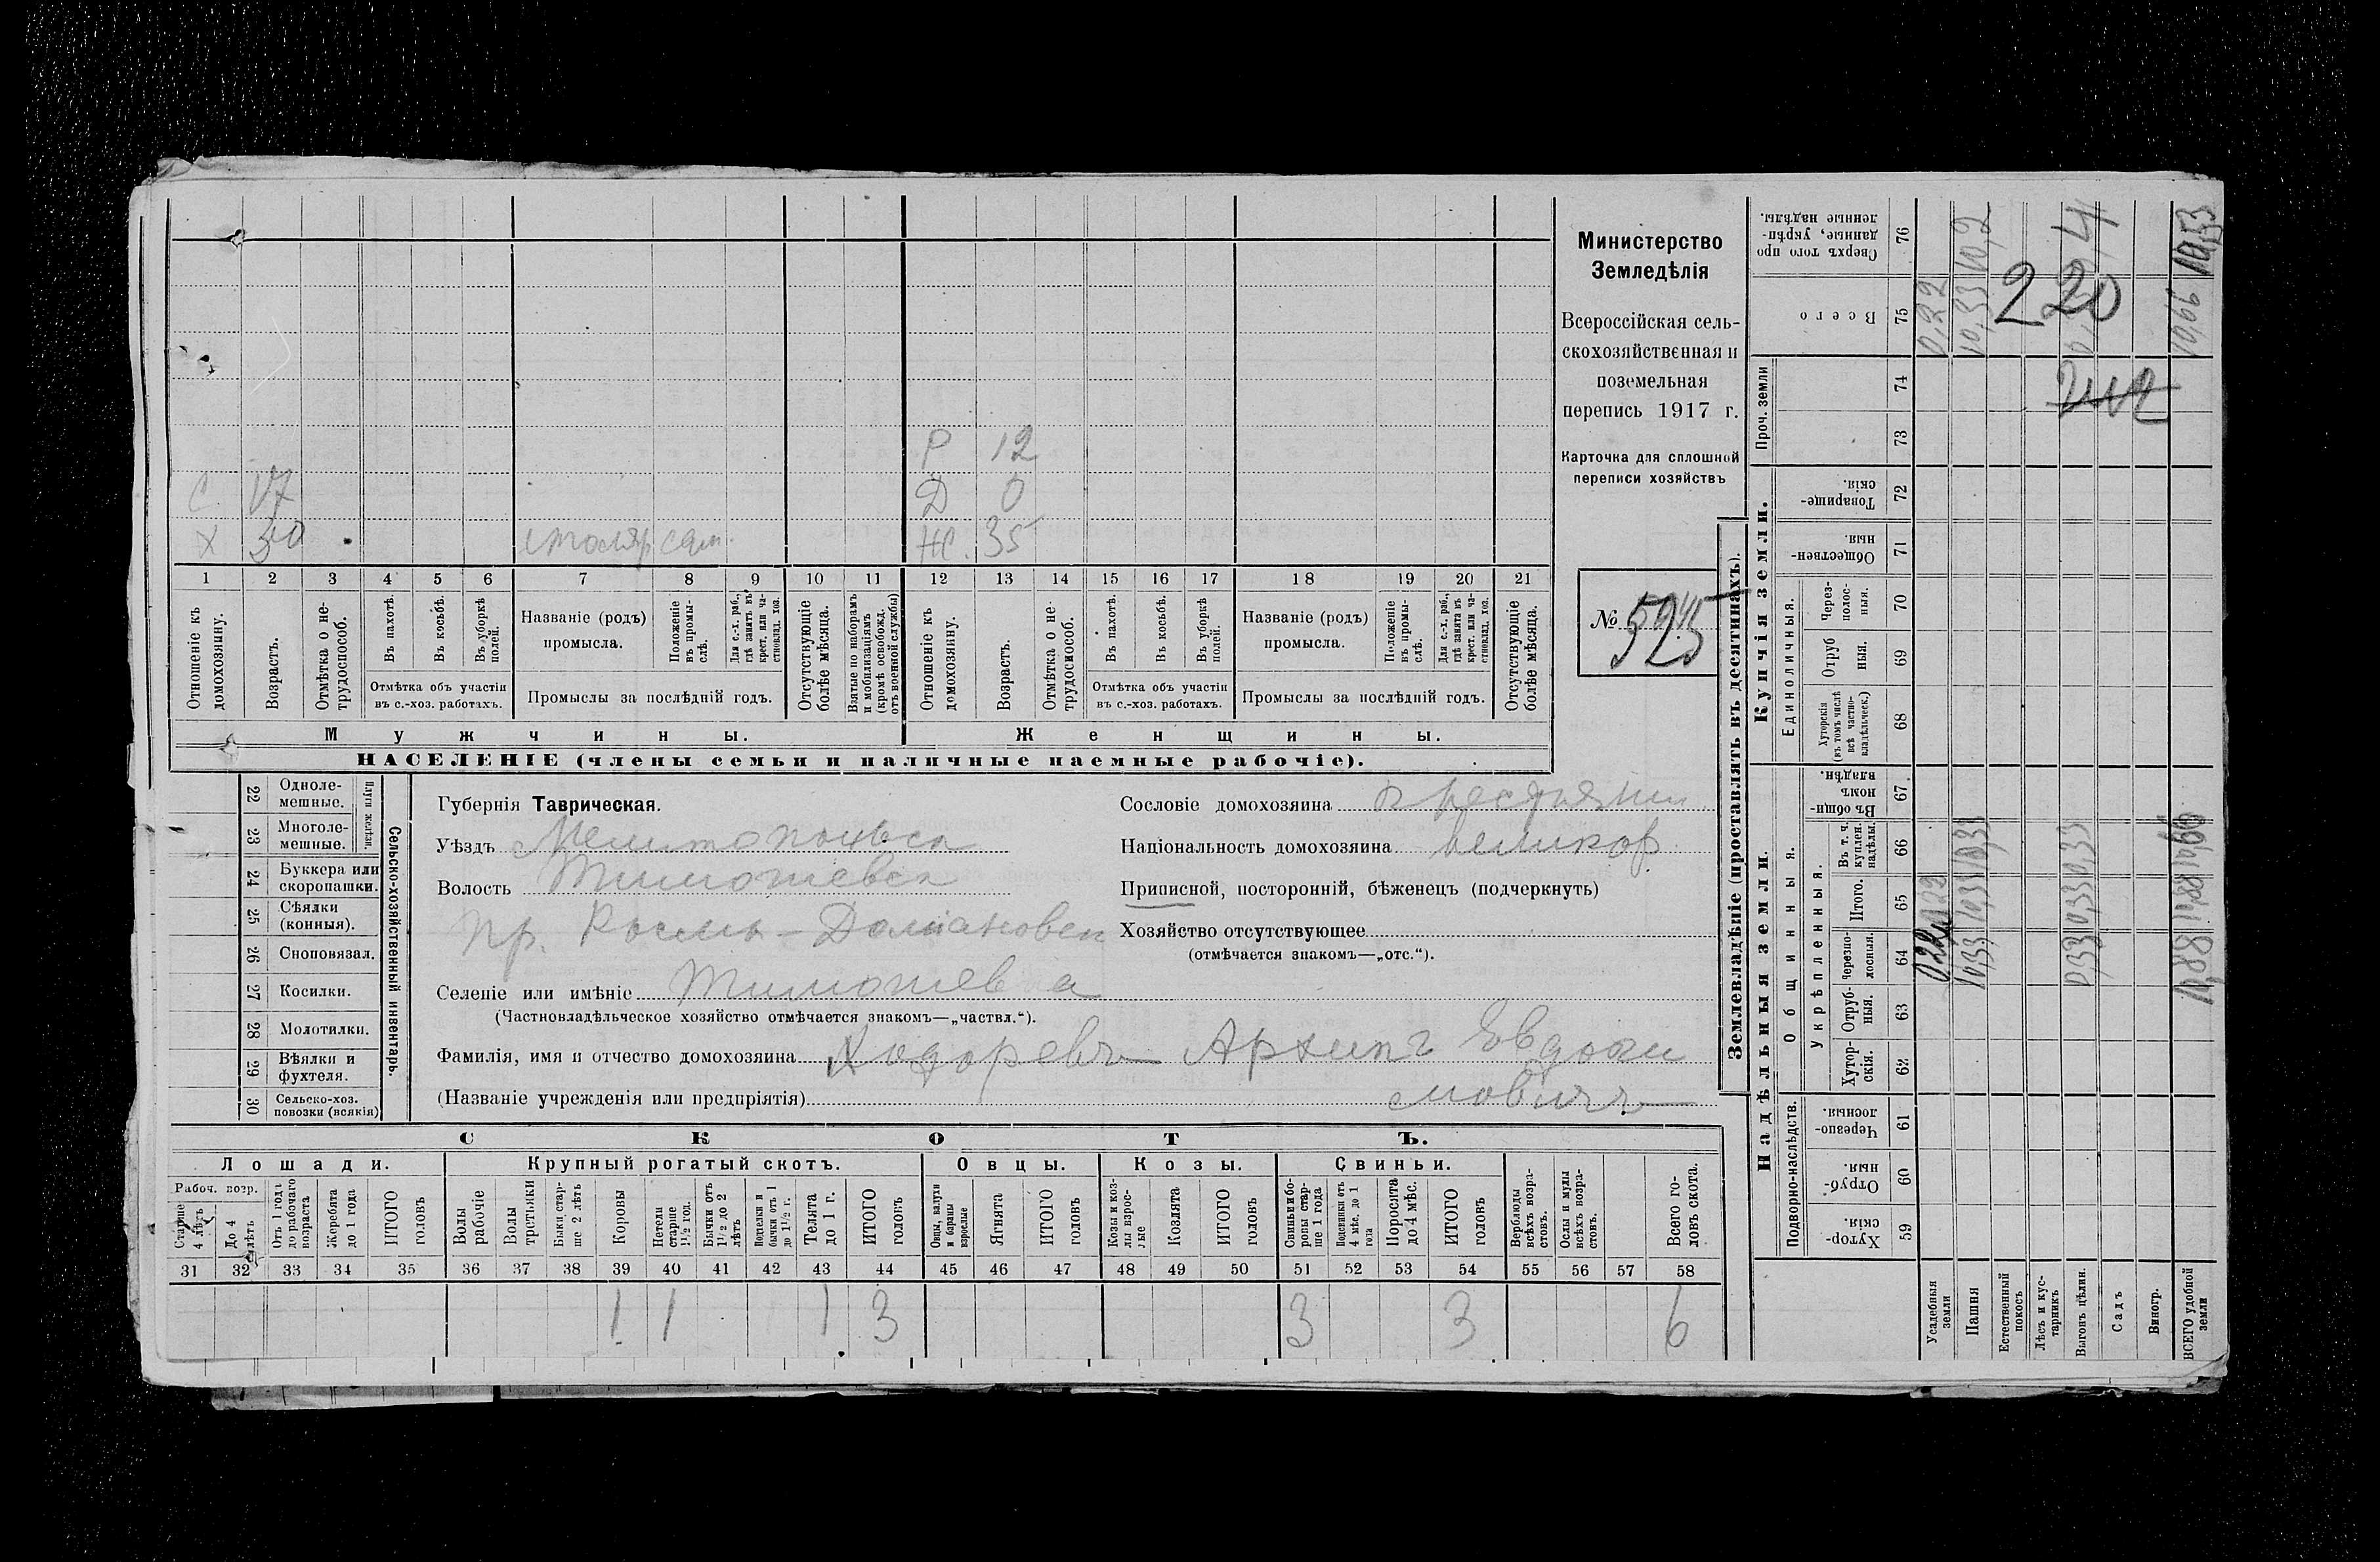 Р 12
С 17 Д 0
Х 50 столяр сам. Ж. 35
1 2 3 4 5 6 7 8 9 10 11 12 13 14 15 16 17 18 19 20 21
Отношеніе къ домохозяину.
Возрастъ.
Отмѣтка о нетрудоспособ.
Въ пахотѣ.
Въ косьбѣ.
Въ уборкѣ полей.
Отмѣтка объ участіи въ с.-хоз. работахъ.
Названіе (родъ) промысла.
Положеніе въ промыслѣ.
Для с.-х. раб., гдѣ занятъ въ крест. или частновлад. хоз.
Промыслы за послѣдній годъ.
Отсутствующіе болѣе мѣсяца.
Взятые по наборамъ и мобилизаціямъ (кромѣ освобожд. отъ военной службы)
Отношеніе къ домохозяину.
Возрастъ.
Отмѣтка о нетрудоспособ.
Въ пахотѣ.
Въ косьбѣ.
Въ уборкѣ полей.
Отмѣтка объ участіи въ с.-хоз. работахъ.
Названіе (родъ) промысла.
Положеніе въ промыслѣ.
Для с.-х. раб., гдѣ занята въ крест. или частновлад. хоз.
Промыслы за послѣдній годъ.
Отсутствующіе болѣе мѣсяца.
Мужчины. Женщины.
НАСЕЛЕНІЕ (члены семьи и наличные наемные рабочіе).
Министерство
Земледѣлія
Всероссійская сель-
скохозяйственная и
поземельная
перепись 1917 г.
Карточка для сплошной
переписи хозяйствъ
№ 525
22 Одноле-
мешные.
23 Многоле-
мешные.
Плуги желѣзн.
24 Буккера или
скоропашки.
25 Сѣялки
(конныя).
26 Сноповязал.
27 Косилки.
28 Молотилки.
29 Вѣялки и
фухтеля.
30 Сельско-хоз.
повозки (всякія)
Сельско-хозяйственный инвентарь.
Губернія Таврическая.
Уѣздъ Мелитопольск
Волость Тимошевск
пр. -Домановск
Селеніе или имѣніе Тимошевка
(Частновладѣльческое хозяйство отмѣчается знакомъ—„частвл.“).
Фамилія, имя и отчество домохозяина Ходоревъ Архипъ Евдоки
(Названіе учрежденія или предпріятія) мовичъ
Сословіе домохозяина крестьянин
Національность домохозяина великор.
Приписной, посторонній, бѣженецъ (подчеркнуть)
Хозяйство отсутствующее
(отмѣчается знакомъ—„отс.“).
СКОТЪ.
Лошади. Крупный рогатый скотъ. Овцы. Козы. Свиньи.
Рабоч. возр.
Старше 4 лѣтъ
До 4 лѣтъ
Отъ 1 года до рабочаго возраста
Жеребята до 1 года
ИТОГО головъ
Волы рабочіе
Волы третьяки
Быки старше 2 лѣтъ
Коровы
Нетели старше 1½ год.
Бычки отъ 1½ до 2 лѣтъ
Подтелки и бычки отъ 1 до 1½ г.
Телята до 1 г.
ИТОГО головъ
Овцы, валухи и бараны взрослые
Ягнята
ИТОГО головъ
Козы и козлы взрослые
Козлята
ИТОГО головъ
Свиньи и боровы старше 1 года
Подсвинки отъ 4 мѣс. до 1 года
Поросята до 4 мѣс.
ИТОГО головъ
Верблюды всѣхъ возрастовъ.
Ослы и мулы всѣхъ возрастовъ.
Всего головъ скота.
31 32 33 34 35 36 37 38 39 40 41 42 43 44 45 46 47 48 49 50 51 52 53 54 55 56 57 58
1 1 1 3 3 3 6
Землевладѣніе (проставлять въ десятинахъ).
Надѣльныя земли. Купчія земли. Проч. земли
Подворно-наслѣдств. Общинныя. Единоличныя.
Укрѣпленныя.
Хуторскія. 59
Отрубныя. 60
Черезполосныя. 61
Хуторскія. 62
Отрубныя. 63
Черезполосныя. 64
Итого. 65
Въ т. ч. куплен. надѣлы. 66
Въ общинномъ владѣн. 67
Хуторскія (въ томъ числѣ всѣ частновладѣльческ.) 68
Отрубныя. 69
Черезполосныя. 70
Общественныя. 71
Товарищескія. 72
73
74
Всего 75
Сверхъ того проданные, укрѣпленные надѣлы. 76
Усадебныя земли 0,22 0,22
Пашня 10,33 10,33 10,33 10,33 10,2
Естественный покосъ
Лѣсъ и кустарникъ
Выгонъ цѣлин. 0,33 0,33 0,33
Садъ
Виногр.
ВСЕГО удобной земли 10,88 10,88 10,66 10,66
220